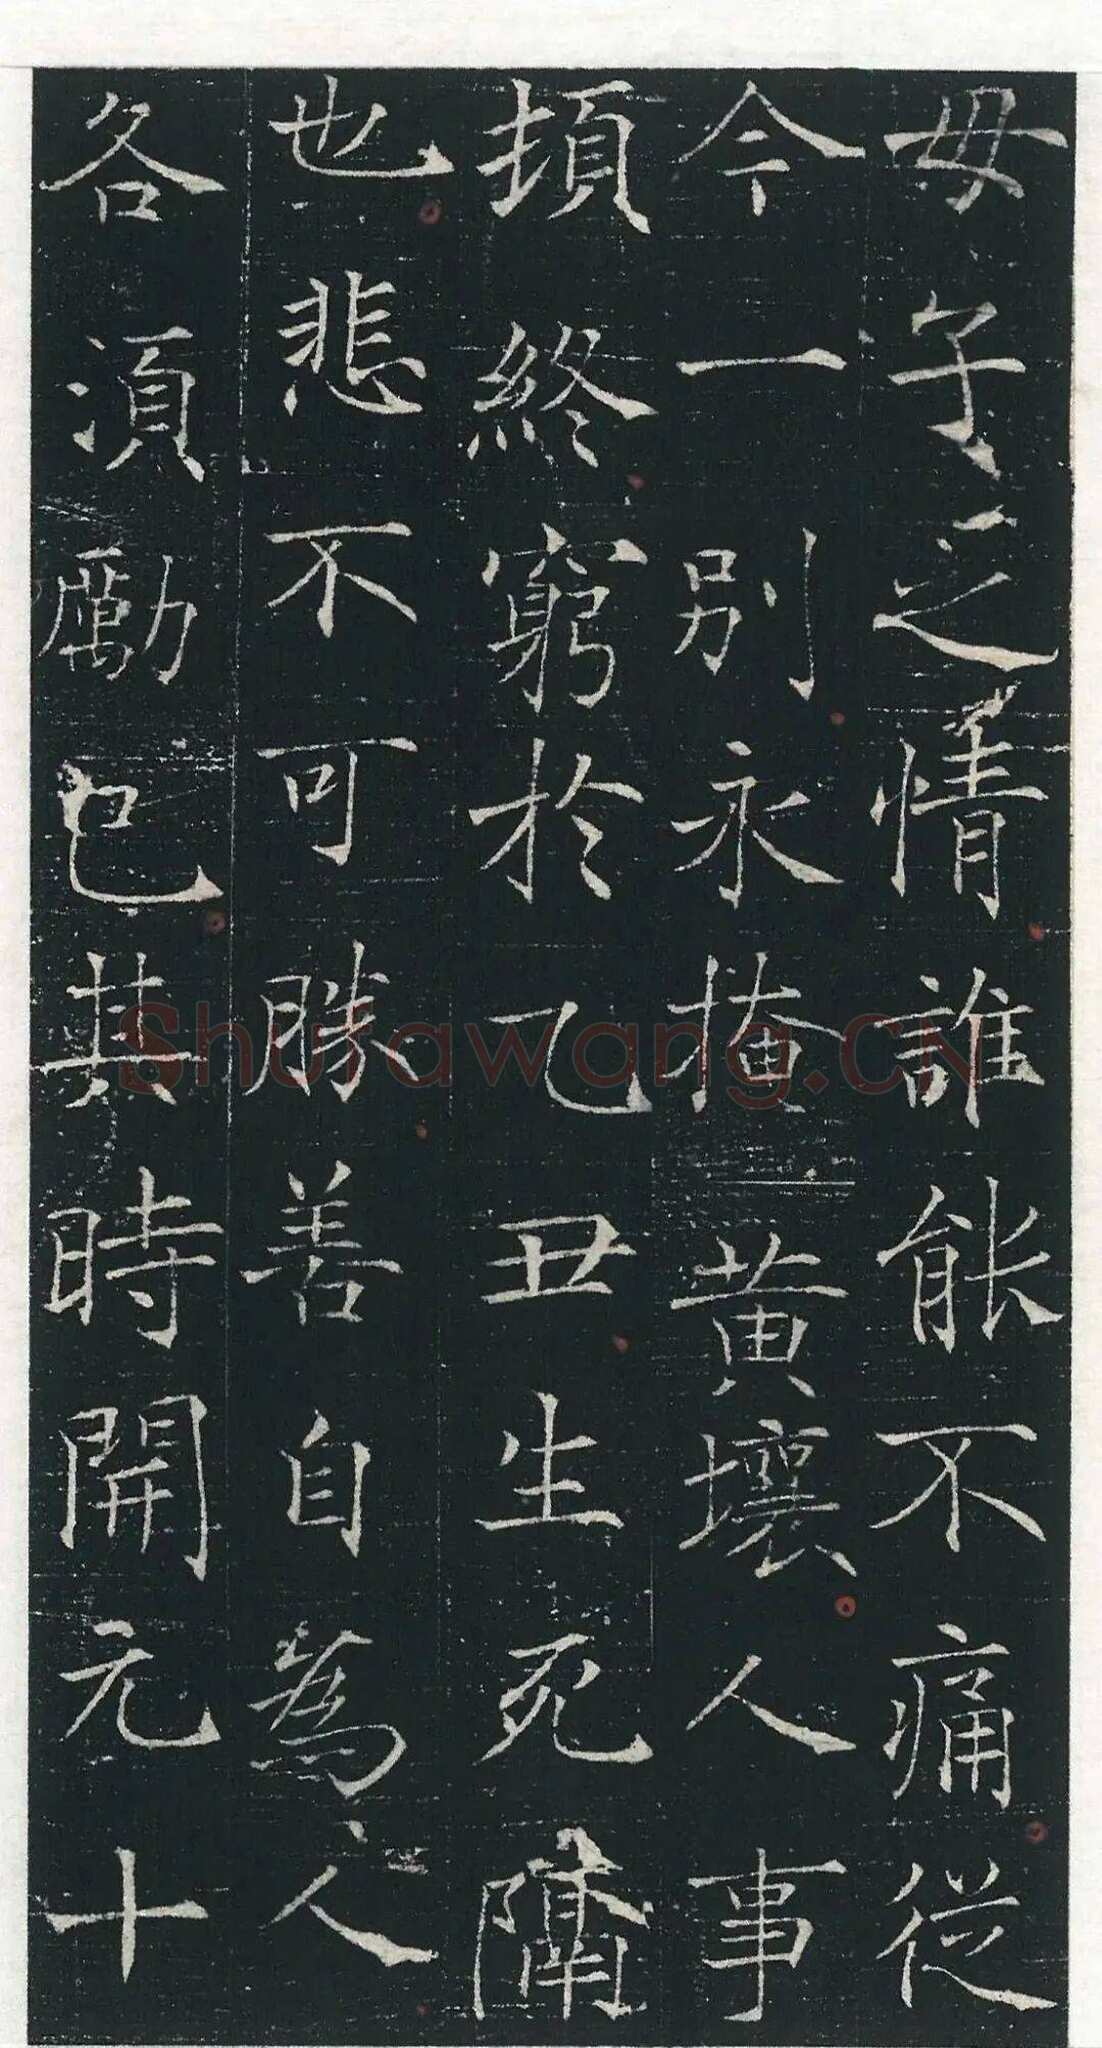 母子之情誰能不痛從
今一別永掩黄壤人事
頓終窮於己丑生死隔
也悲不可勝善自為人
各須勵已其時開元十
Shufawang.CN